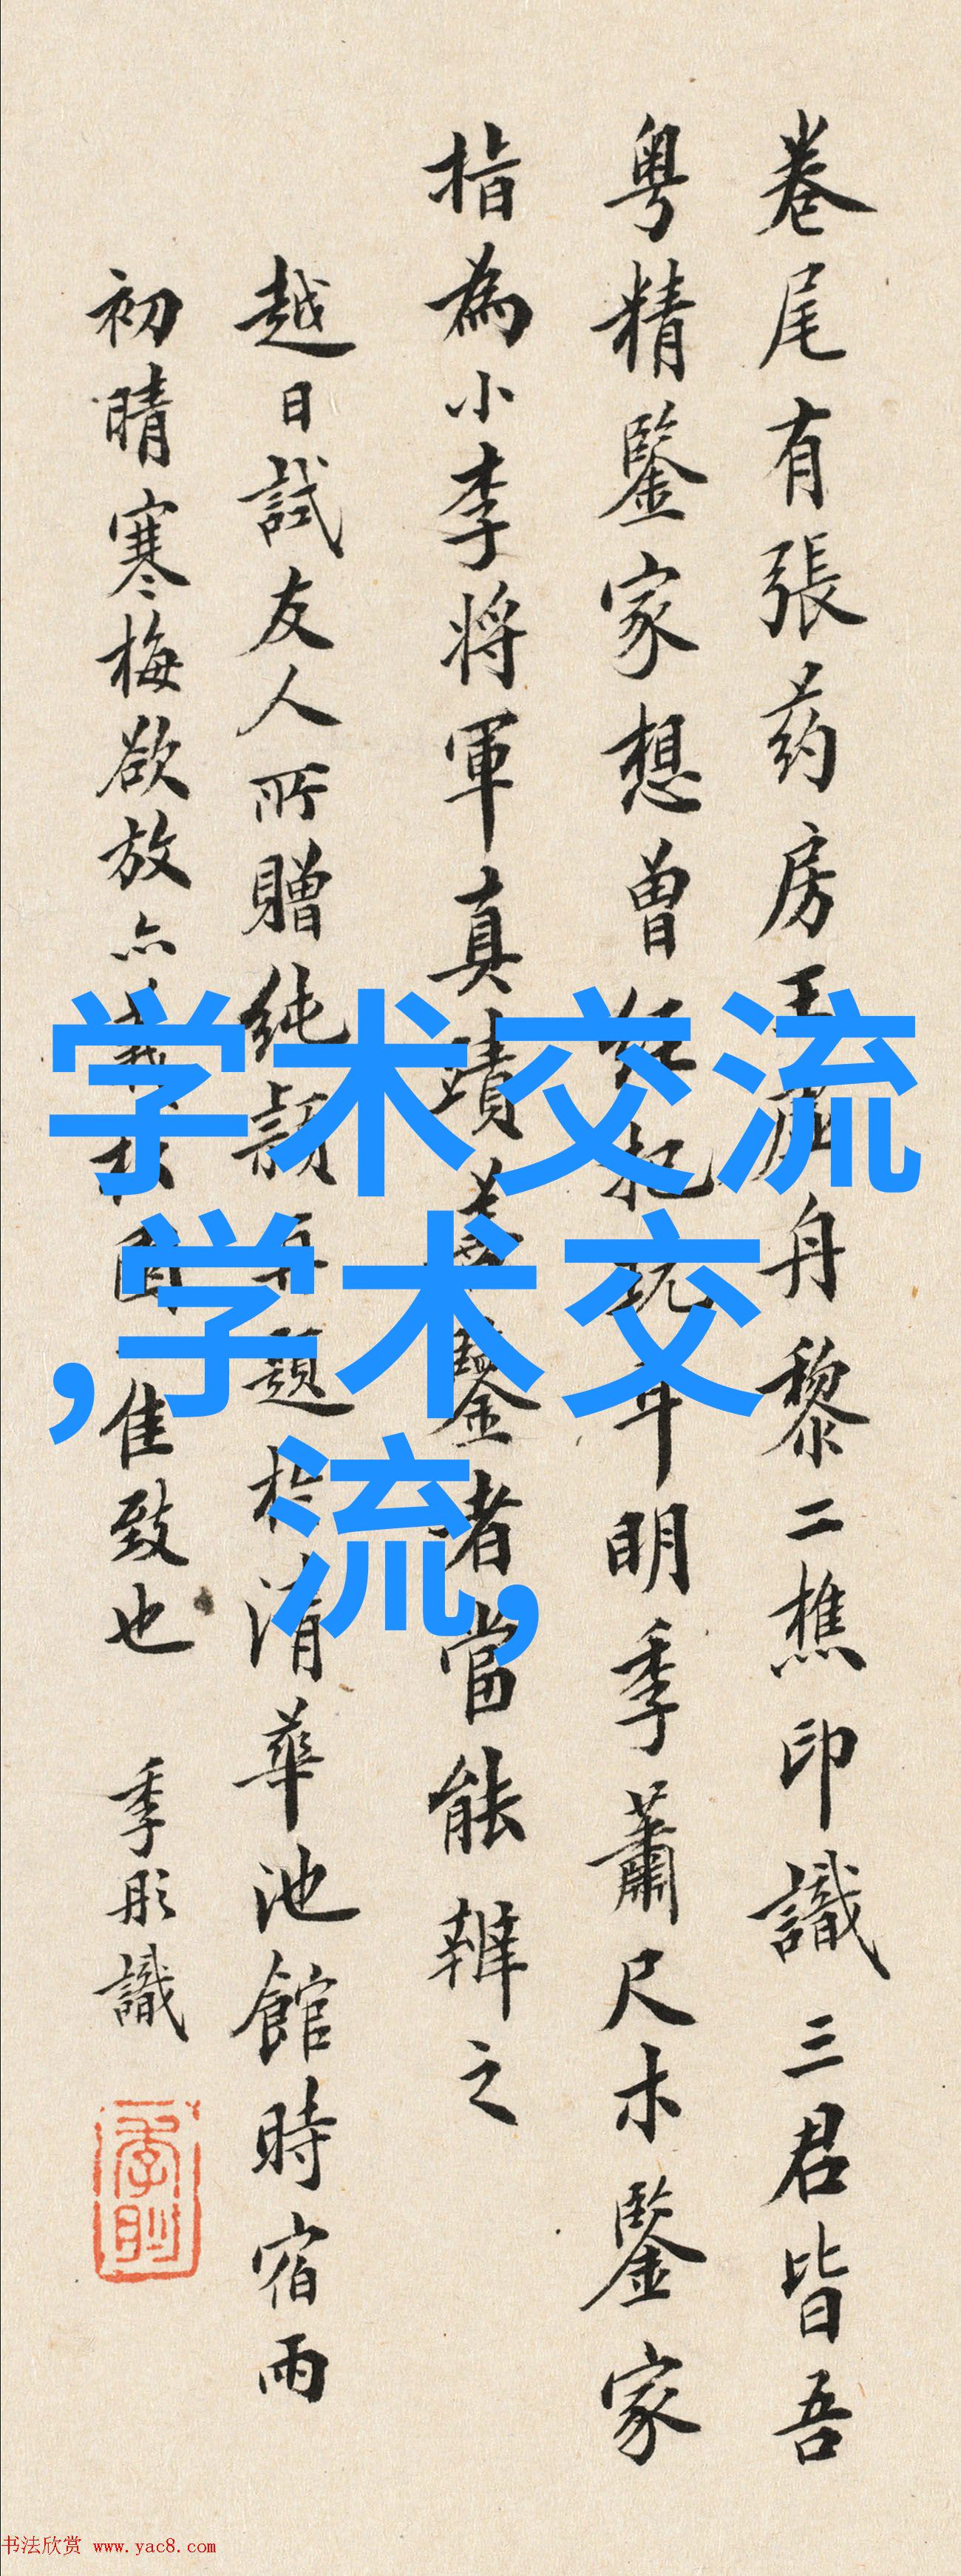 卷尾有張药房王舟黎二樵印識三君皆吾
粤精鑒家想曾明季蕭尺木鑒家
指為小李將軍真蹟鑒者當能辨之
越日試友人所贈純題於清華池館時宿雨
初晴寒梅欲放亦佳致也 季彤識
学术交流
,学术交
流,
书法欣赏 www.yac8.com